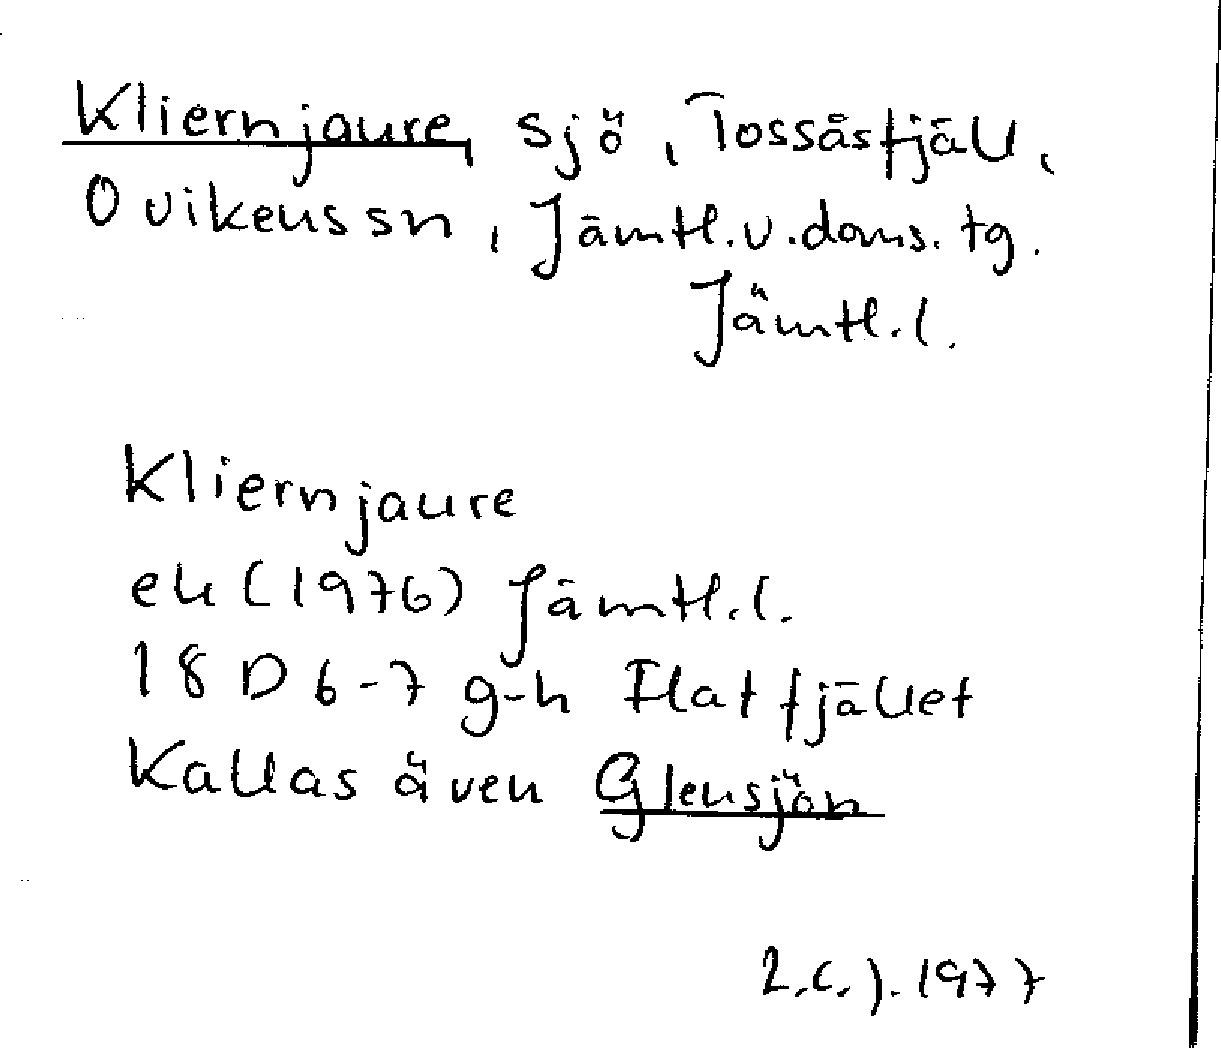 Kliernjaure, sjö, Tossåsfjäll,
Ovikens sn, Jämtl. v. doms. tg.
Jämtl. l.
Kliernjaure
ek (1976) Jämtl. l.
18 D 6-7 g-h Flatfjället
Kallas även Glensjön
1977